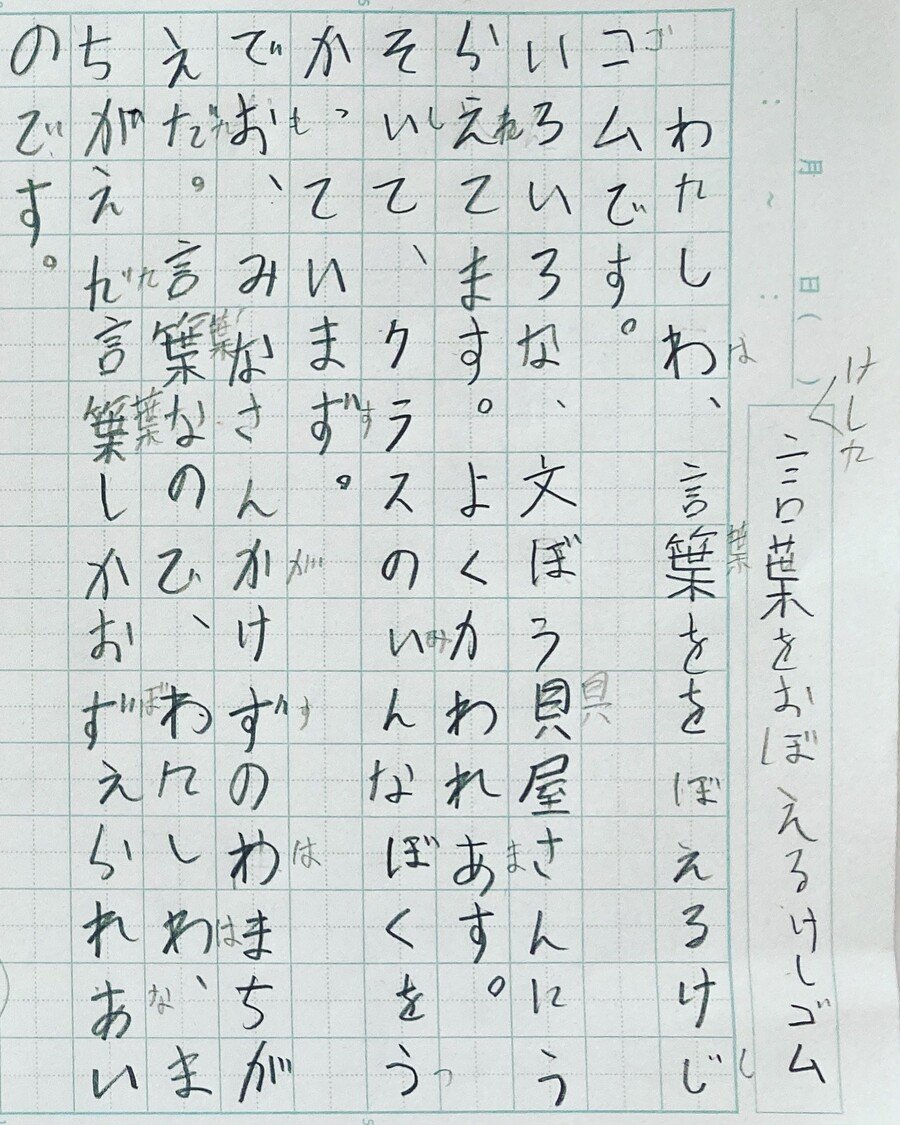 月 日( )
けした
言葉をおぼえるけしゴム
わたしわ、言葉ををぼえるけじ
は葉し
コムです。
ゴ
いろいろな、文ぼう貝屋さんにう
具
らえてます。よくかわれあす。
れま
そいて、クラスのいんなぼくをう
しみっ
かっていまず。
す
でお、みなさんかけずのわまちが
もがすは
えだ。言葉なので、わたしわ、ま
た葉は
ちがえだ言葉しかおずえられあい
た葉ぼな
のです。